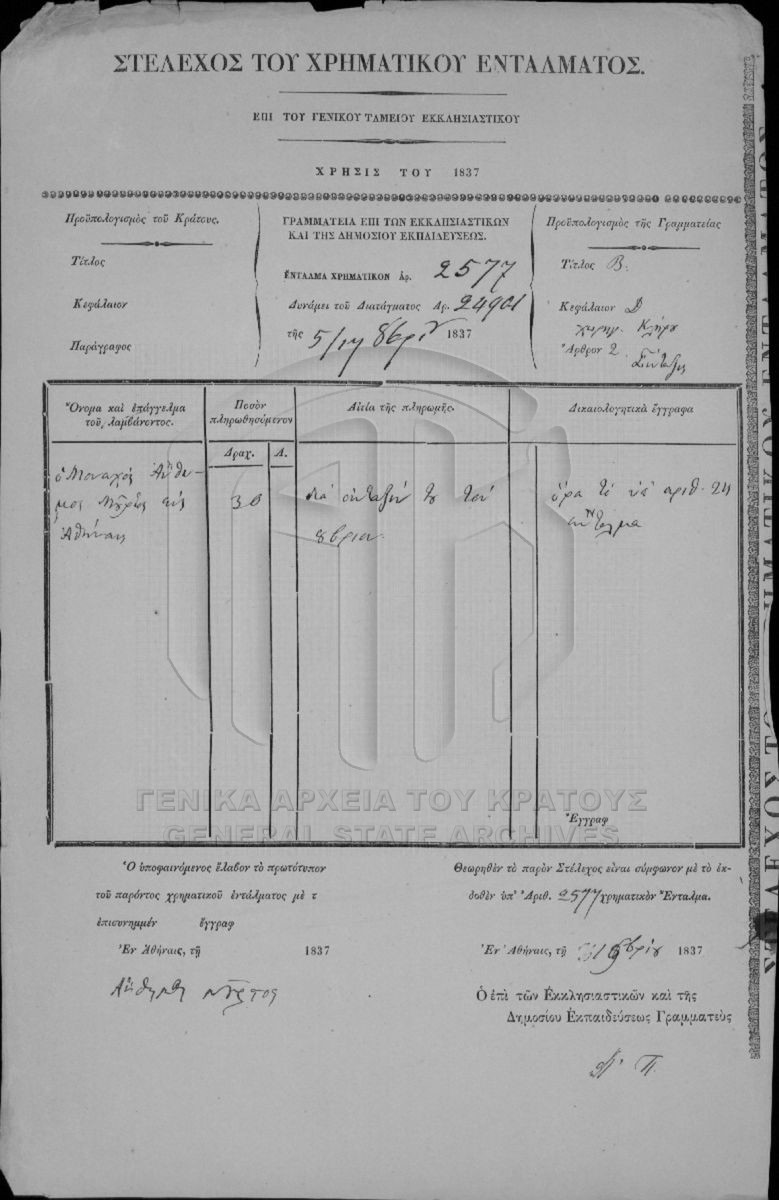 ΣΤΕΛΕΧΟΣ ΤΟΥ ΧΡΗΜΑΤΙΚΟΥ ΕΝΤΑΛΜΑΤΟΣ.
ΕΠΙ ΤΟΥ ΓΕΝΙΚΟΥ ΤΑΜΕΙΟΥ ΕΚΚΛΗΣΙΑΣΤΙΚΟΥ
ΧΡΗΣΙΣ ΤΟΥ 1837
Προϋπολογισμὸς τοῦ Κράτους.
Τίτλος
Κεφάλαιον
Παράγραφος
ΓΡΑΜΜΑΤΕΙΑ ΕΠΙ ΤΩΝ ΕΚΚΛΗΣΙΑΣΤΙΚΩΝ
ΚΑΙ ΤΗΣ ΔΗΜΟΣΙΟΥ ΕΚΠΑΙΔΕΥΣΕΩΣ.
ΕΝΤΑΛΜΑ ΧΡΗΜΑΤΙΚΟΝ ΑΡ. 2577
Δυνάμει τοῦ Διατάγματος Αρ. 24901
τῆς 5/17 8βρίου 1837
Προϋπολογισμὸς τῆς Γραμματείας
Τίτλος Β.
Κεφάλαιον Δ
Κλήρου
Ἄρθρον 2
Σύνταξις
Ὄνομα καὶ ἐπάγγελμα
τοῦ λαμβάνοντος.
Ποσὸν
πληρωθησόμενον
Δραχ. Λ.
Αἰτία τῆς πληρωμῆς.
Δικαιολογητικὰ ἔγγραφα
ὁ Μοναχὸς Ἄνθι-
μος εἰς
Ἀθήνας
30
διὰ σύνταξίν του τοῦ
8βρίου
ὅρα τὸ ὑπ' ἀριθ. 24
ἔνταλμα
Ἔγγραφ
ΓΕΝΙΚΑ ΑΡΧΕΙΑ ΤΟΥ ΚΡΑΤΟΥΣ
GENERAL STATE ARCHIVES
Ὁ ὑποφαινόμενος ἔλαβον τὸ πρωτότυπον
τοῦ παρόντος χρηματικοῦ ἐντάλματος μὲ τ
ἐπισυνημμέν ἔγγραφ
Ἐν Ἀθήναις, τῇ 1837
Θεωρηθὲν τὸ παρὸν Στέλεχος εἶναι σύμφωνον μὲ τὸ ἐκ-
δοθὲν ὑπ' Ἀριθ. 2577 χρηματικὸν Ἔνταλμα.
Ἐν Ἀθήναις, τῇ 8βρίου 1837
Ὁ ἐπὶ τῶν Ἐκκλησιαστικῶν καὶ τῆς
Δημοσίου Ἐκπαιδεύσεως Γραμματεὺς